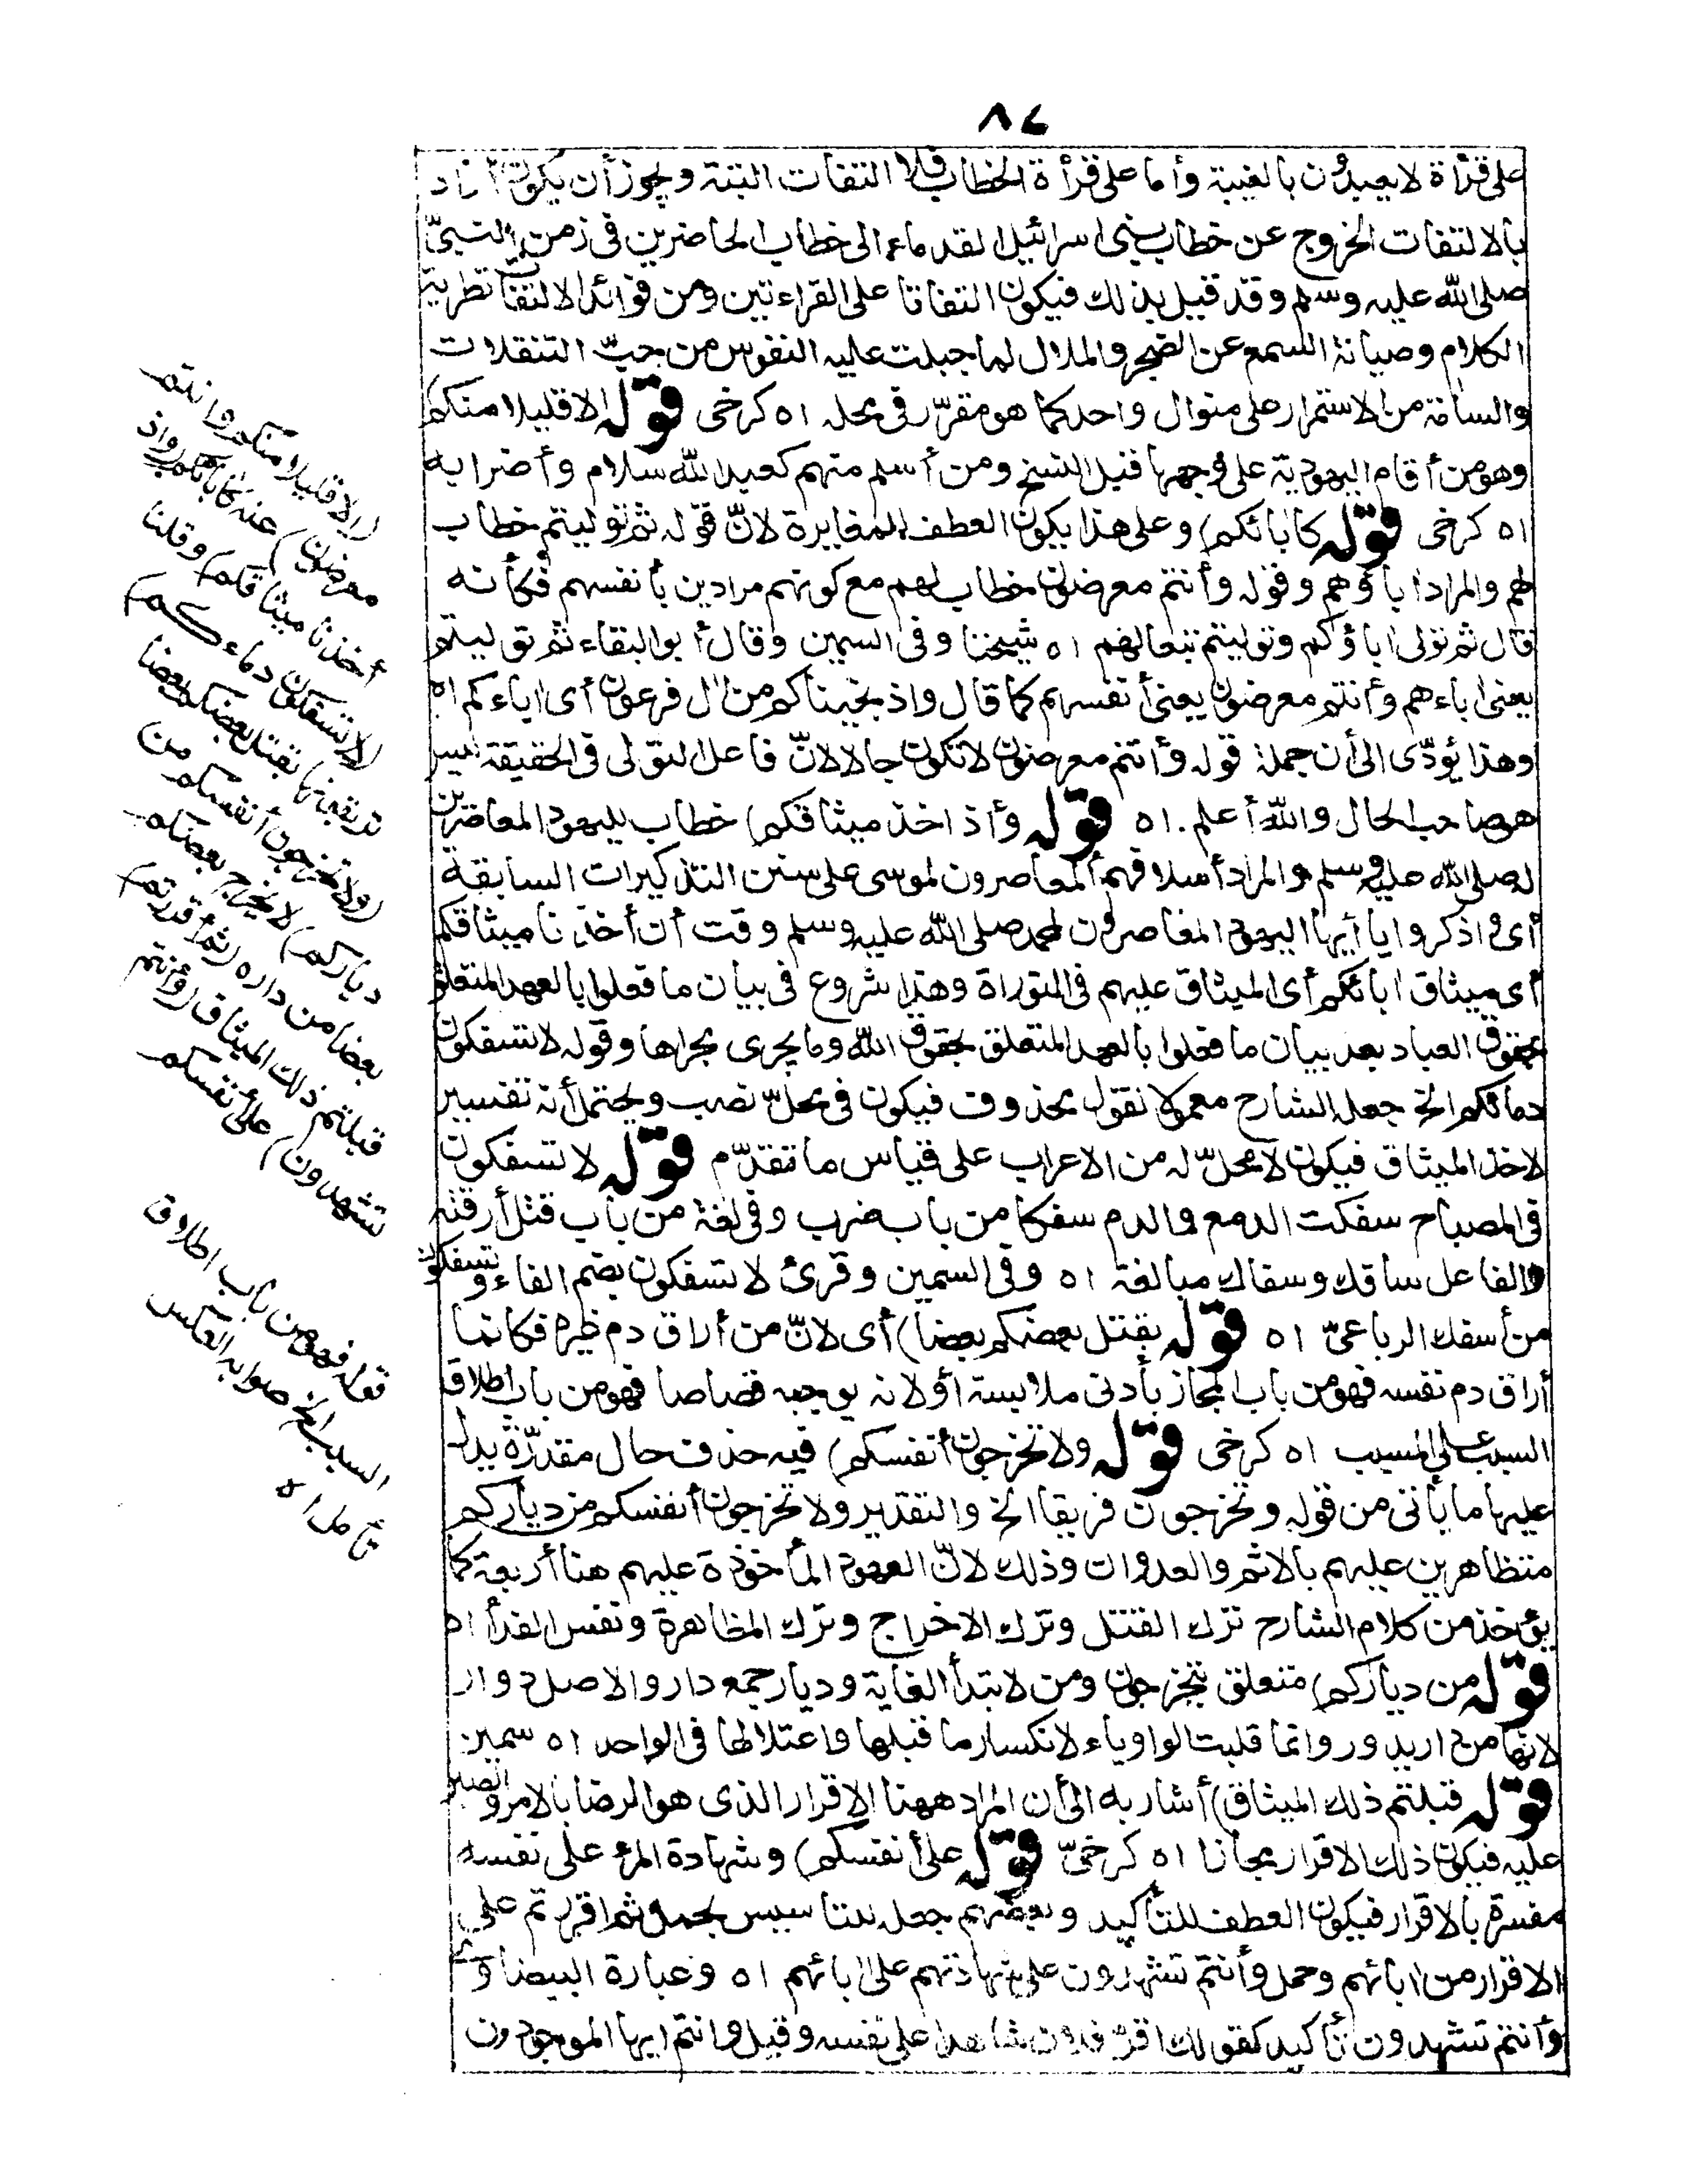 ٨٤
على قراءة لا يعبدون بالغيبة وأما على قرأة الخطاب فلا التفات البتة ويجوز أن يكون أراد
بالالتفات الخروج عن خطاب بنى اسرائيل القدماء الى خطاب الحاضرين فى زمن النبىّ
صلى الله عليه وسلم وقد قيل بذلك فيكون التفاتا على القراءتين ومن فوائد الالتفات تطرية
الكلام وصيانة السمع عن الضجر والملال لما جبلت عليه النفوس من حبّ التنقلات
والسامة من الاستمرار على منوال واحد كما هو مقرّر فى محله اه كرخى قوله الا قليلا منكم)
وهو من أقام اليهودية على وجهها قبل النسخ ومن أسلم منهم كعبد الله سلام وأضرابه
اه كرخى قوله كابائكم) وعلى هذا يكون العطف للمغايرة لانّ قوله ثم توليتم خطاب
لهم والمراد اباؤهم وقوله وأنتم معرضون خطاب لهم مع كونهم مرادين بأنفسهم فكأنه
قال ثم تولى اباؤكم وتوليتم تبعا لهم اه شيخنا وفى السمين وقال أبو البقاء ثم توليتم
يعنى اباءهم وأنتم معرضون يعنى أنفسهم كما قال واذ نجيناكم من ال فرعون أى اباءكم اه
وهذا يؤدّى الى أن جملة قوله وأنتم معرضون لا تكون حالا لانّ فاعل التولى فى الحقيقة ليس
هو صاحب الحال والله أعلم. اه قوله وأذ اخذ ميثاقكم) خطاب لليهود المعاصرين
له صلى الله عليه وسلم والمراد أسلافهم المعاصرون لموسى على سنن التذكيرات السابقة
أى واذكروا يا أيها اليهود المعاصرون لمحمد صلى الله عليه وسلم وقت أن أخذنا ميثاقكم
أى ميثاق ابائكم أى الميثاق عليهم فى التوراة وهذا شروع فى بيان ما فعلوا بالعهد المتعلق
بحقوق العباد بعد بيان ما فعلوا بالعهد المتعلق بحقوق الله وما يجرى مجراها وقوله لا تسفكون
دماءكم الخ جعل الشارح معمولا لقول محذوف فيكون فى محلّ نصب ويحتمل أنه تفسير
لاخذ الميثاق فيكون لا محلّ له من الاعراب على قياس ما تقدّم قوله لا تسفكون
فى المصباح سفكت الدمع والدم سفكا من باب ضرب وفى لغة من باب قتل أرقته
والفاعل سافك وسفاك مبالغة اه وفى السمين وقرئ لا تسفكون بضم الفاء وتسفكون
من أسفك الرباعىّ اه قوله بقتل بعضكم بعضا) أى لانّ من أراق دم غيره فكانما
أراق دم نفسه فهو من باب المجاز بأدنى ملابسة أو لانه يوجبه قصاصا فهو من باب اطلاق
السبب على المسبب اه كرخى قوله ولا تخرجون أنفسكم) فيه حذف حال مقدّرة يدل
عليها ما يأتى من قوله وتخرجون فريقا الخ والتقدير ولا تخرجون أنفسكم من دياركم
متظاهرين عليهم بالاثم والعدوان وذلك لانّ العهود المأخوذة عليهم هنا أربعة كما
يؤخذ من كلام الشارح ترك القتل وترك الاخراج وترك المظاهرة ونفس الفدأ اه
قوله من دياركم) متعلق بتخرجون ومن لابتدأ الغاية وديار جمع دار والاصل دوار
لانها من دار يدور وانما قلبت الواو ياء لانكسار ما قبلها واعتلالها فى الواحد اه سمين
قوله قبلتم ذلك الميثاق) أشار به الى أن المراد ههنا الاقرار الذى هو الرضا بالامر والصبر
عليه فيكون ذلك الاقرار مجازا اه كرخىّ قوله على أنفسكم) وشهادة المرء على نفسه
مفسرة بالاقرار فيكون العطف للتأكيد وبعضهم جعله للتأسيس بحمل ثم اقررتم على
الاقرار من ابائهم وحمل وأنتم تشهدون على شهادتهم على ابائهم اه وعبارة البيضاوى
وأنتم تشهدون تأكيد كقولك اقرّ فلان شاهدا على نفسه وقيل وانتم ايها الموجودون
(الا قليلا منكم وانتم
معرضون) عنه كابائكم (واذ
أخذنا ميثاقكم) وقلنا
(لا تسفكون دماءكم)
تريقونها بقتل بعضكم بعضا
(ولا تخرجون أنفسكم من
دياركم) لا يخرج بعضكم
بعضا من داره (ثم أقررتم)
قبلتم ذلك الميثاق (وأنتم
تشهدون) على أنفسكم
قوله فهو من باب اطلاق
السبب الخ صوابه العكس
تأمل اه